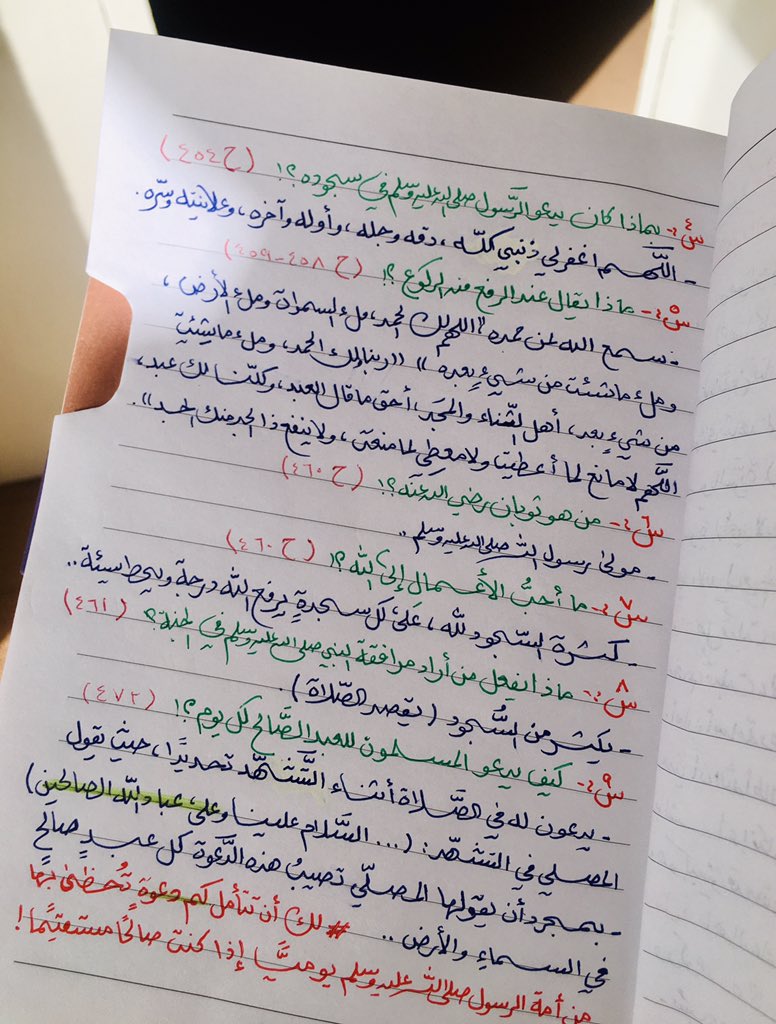 س٤- بماذا كان يدعو الرَّسول صلى الله عليه وسلم في سجوده؟! (ح ٤٥٤)
- اللَّهم اغفرلي ذنبي كلّه، دقه وجله، وأوله وآخره، وعلانيته وسرّه.
س٥- ماذا يقال عند الرفع من الركوع؟! (ح ٤٥٨-٤٥٩)
- سمع الله لمن حمده "اللهم لك الحمد، ملء السموات وملء الأرض،
وملء ما شئت من شيءٍ بعد" ((ربنا لك الحمد، وملء ما شئت
من شيءٍ بعد، أهل الثّناء والمجد، أحق ما قال العبد، وكلّنا لك عبد،
اللَّهم لا مانع لما أعطيت ولا معطي لما منعت، ولا ينفع ذا الجد منك الجد)).
س٦- من هو ثوبان رضي الله عنه؟! (ح ٤٦٠)
- مولى رسول الله صلى الله عليه وسلم..
س٧- ما أحبُّ الأعمال إلى الله؟! (ح ٤٦٠)
- كثرة السّجود لله، على كل سجدةٍ يرفع الله درجة ويحط سيئة..
س٨- ماذا يفعل من أراد مرافقة النبي صلى الله عليه وسلم في الجنة؟ (٤٦١)
- يكثر من السُّجود (يقصد الصّلاة).
س٩- كيف يدعو المسلمون للعبد الصَّالح كل يوم؟! (٤٧٢)
- يدعون له في الصَّلاة أثناء التَّشهّد تحديدًا، حيث يقول
المصلي في التشهّد: (... السَّلام علينا وعلى عباد الله الصالحين)
- بمجرد أن يقولها المصلّي تصيبُ هذه الدَّعوة كل عبدٍ صالحٍ
في السماء والأرض.. # لك أن تتأمل كم دعوة تُحظى بها
من أمة الرسول صلى الله عليه وسلم يوميًّا إذا كنت صالحًا مستقيمًا!